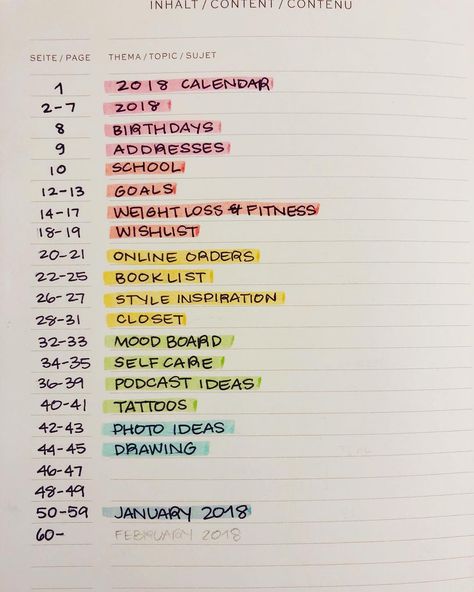 INHALT / CONTENT / CONTENU
SEITE / PAGE THEMA / TOPIC / SUJET
1 2018 CALENDAR
2-7 2018
8 BIRTHDAYS
9 ADDRESSES
10 SCHOOL
12-13 GOALS
14-17 WEIGHT LOSS & FITNESS
18-19 WISHLIST
20-21 ONLINE ORDERS
22-25 BOOK LIST
26-27 STYLE INSPIRATION
28-31 CLOSET
32-33 MOOD BOARD
34-35 SELF CARE
36-39 PODCAST IDEAS
40-41 TATTOOS
42-43 PHOTO IDEAS
44-45 DRAWING
46-47
48-49
50-59 JANUARY 2018
60- FEBRUARY 2018